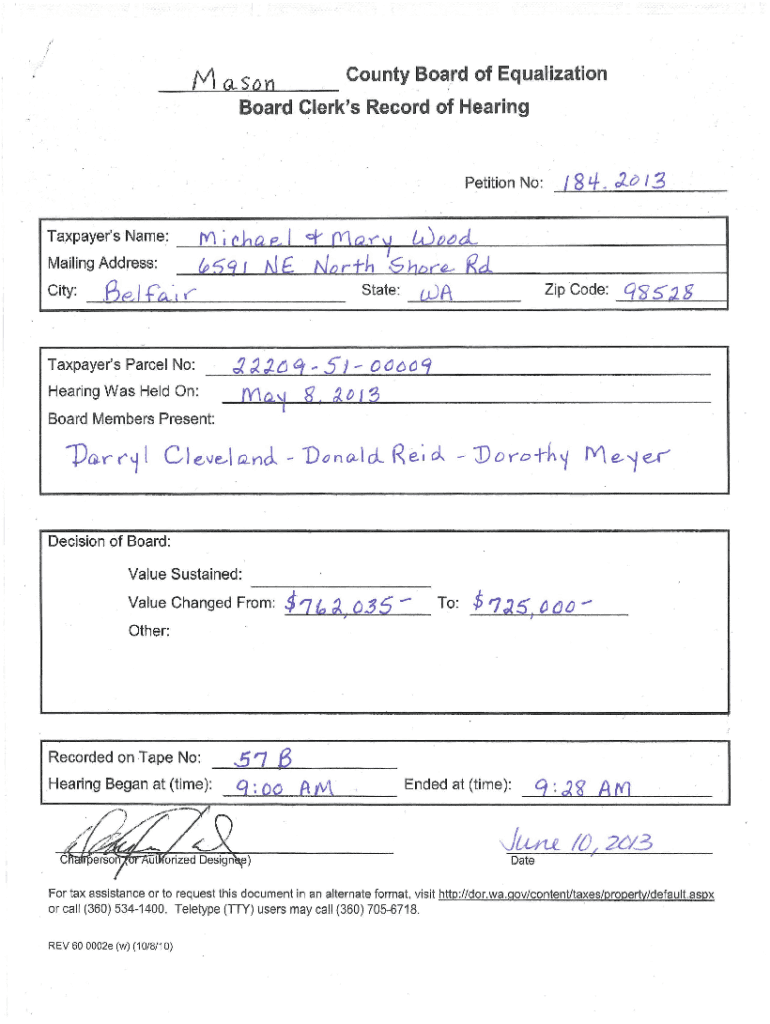 Mason County Board of Equalization
Board Clerk's Record of Hearing
Petition No: 184.2013
Taxpayer's Name: Michael & Mary Wood
Mailing Address: 6591 NE North Shore Rd
City: Belfair State: WA Zip Code: 98528
Taxpayer's Parcel No: 22209-51-00009
Hearing Was Held On: May 8, 2013
Board Members Present:
Darryl Cleveland - Donald Reid - Dorothy Meyer
Decision of Board:
Value Sustained:
Value Changed From: $762,035- To: $725,000-
Other:
Recorded on Tape No: 57 B
Hearing Began at (time): 9:00 AM Ended at (time): 9:28 AM
June 10, 2013
Chairperson (or Authorized Designee) Date
For tax assistance or to request this document in an alternate format, visit http://dor.wa.gov/content/taxes/property/default.aspx
or call (360) 534-1400. Teletype (TTY) users may call (360) 705-6718.
REV 60 0002e (w) (10/8/10)